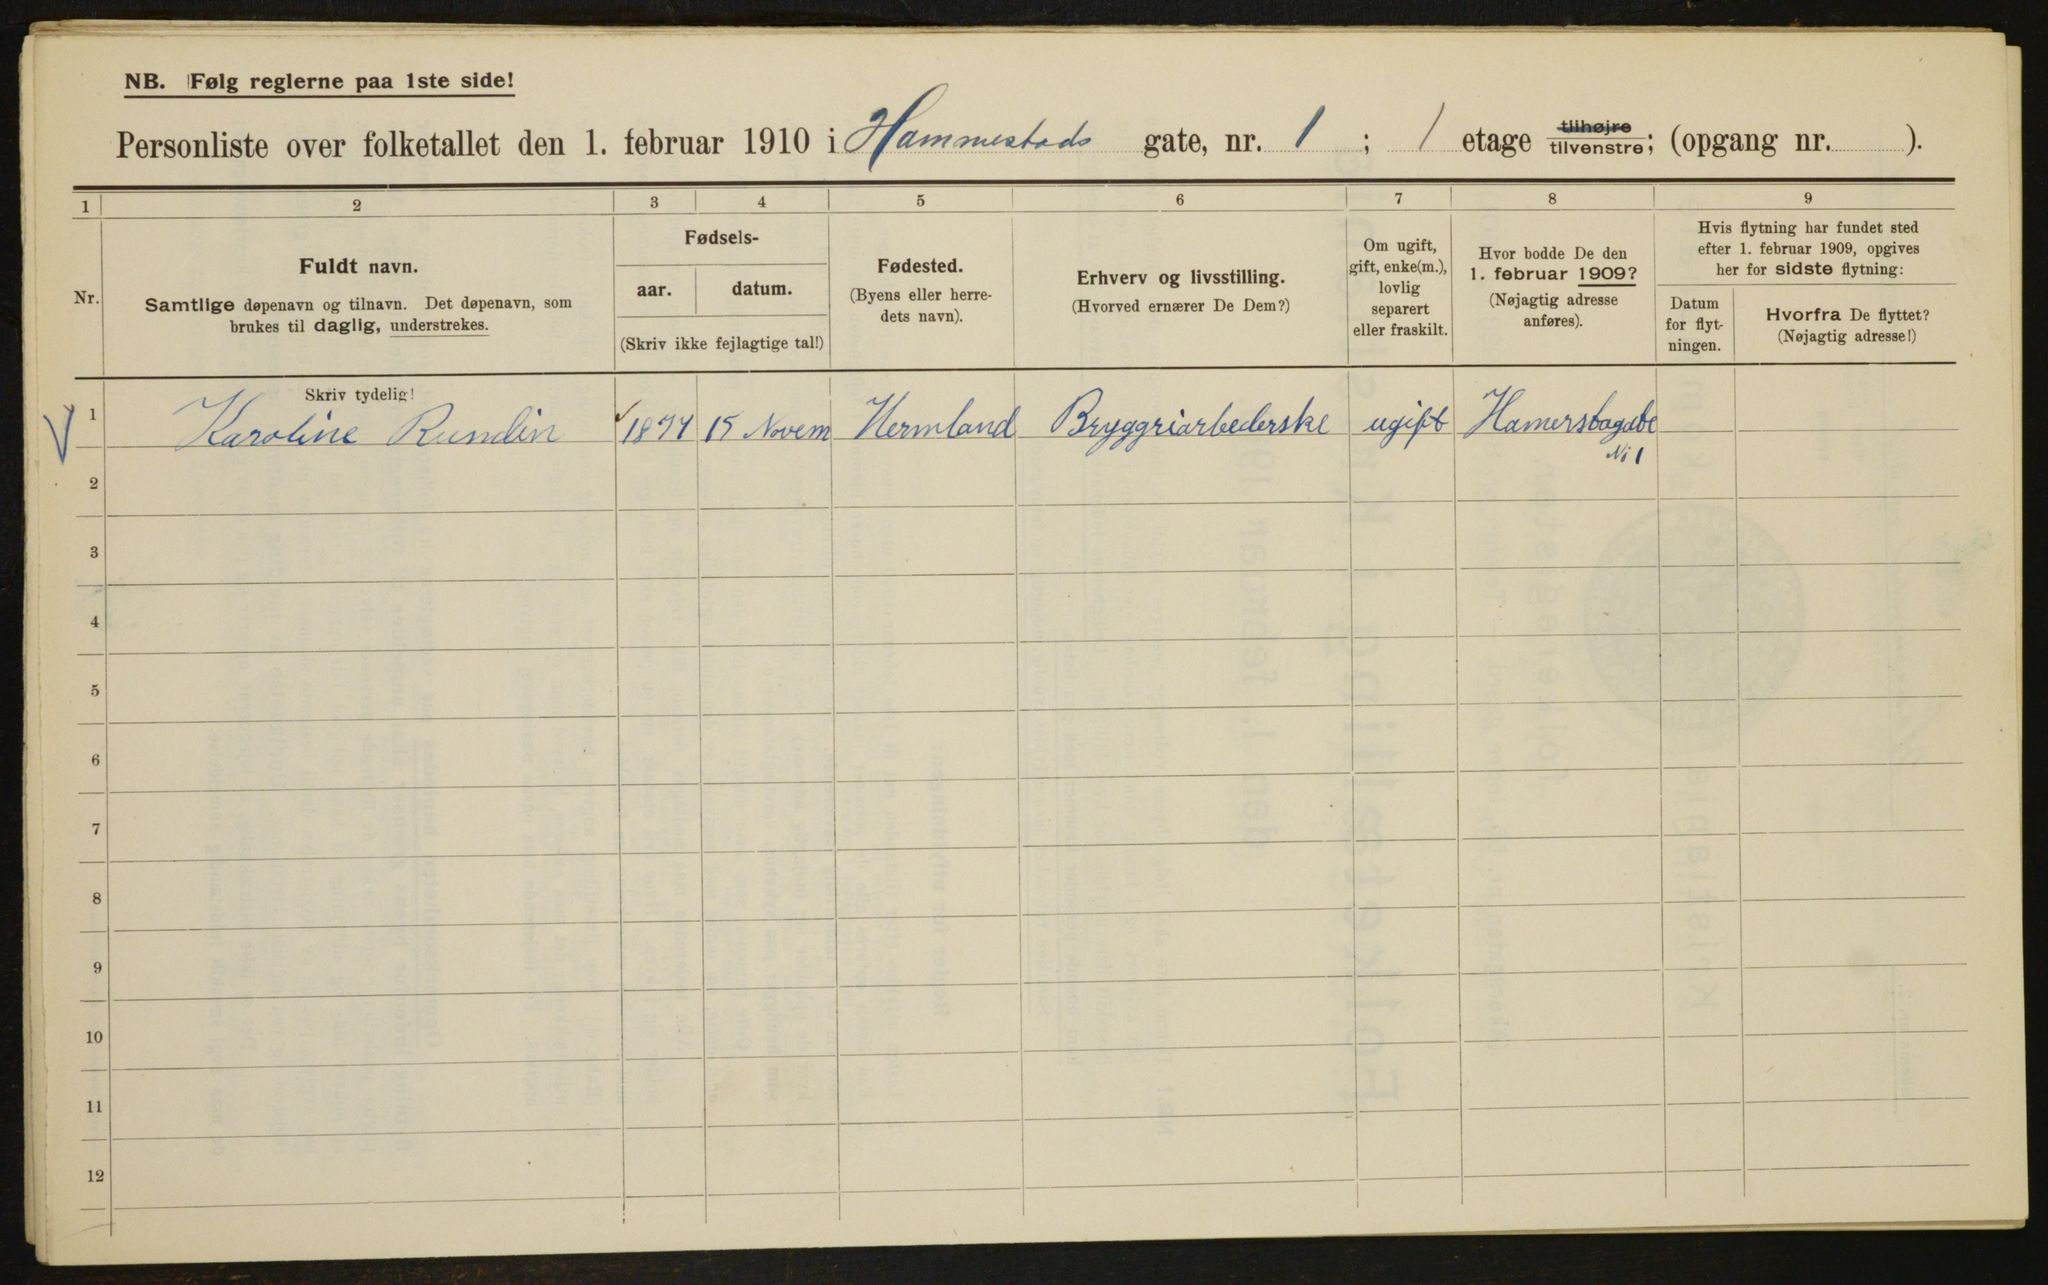 NB. Følg reglerne paa 1ste side!
Personliste over folketallet den 1. februar 1910 i Hammestads gate, nr. 1 ; 1 etage tilhøjre tilvenstre; (opgang nr. ).
1 2 3 4 5 6 7 8 9
Nr.
Fuldt navn.
Samtlige døpenavn og tilnavn. Det døpenavn, som
brukes til daglig, understrekes.
Fødsels-
aar. datum.
(Skriv ikke fejlagtige tal!)
Fødested.
(Byens eller herre-
dets navn).
Erhverv og livsstilling.
(Hvorved ernærer De Dem?)
Om ugift,
gift, enke(m.),
lovlig
separert
eller fraskilt.
Hvor bodde De den
1. februar 1909?
(Nøjagtig adresse
anføres).
Hvis flytning har fundet sted
efter 1. februar 1909, opgives
her for sidste flytning:
Datum
for flyt-
ningen.
Hvorfra De flyttet?
(Nøjagtig adresse!)
Skriv tydelig!
1 Karoline Rundin 1877 15 Novem Hermland Bryggriarbederske ugift
2
3
4
5
6
7
8
9
10
11
12